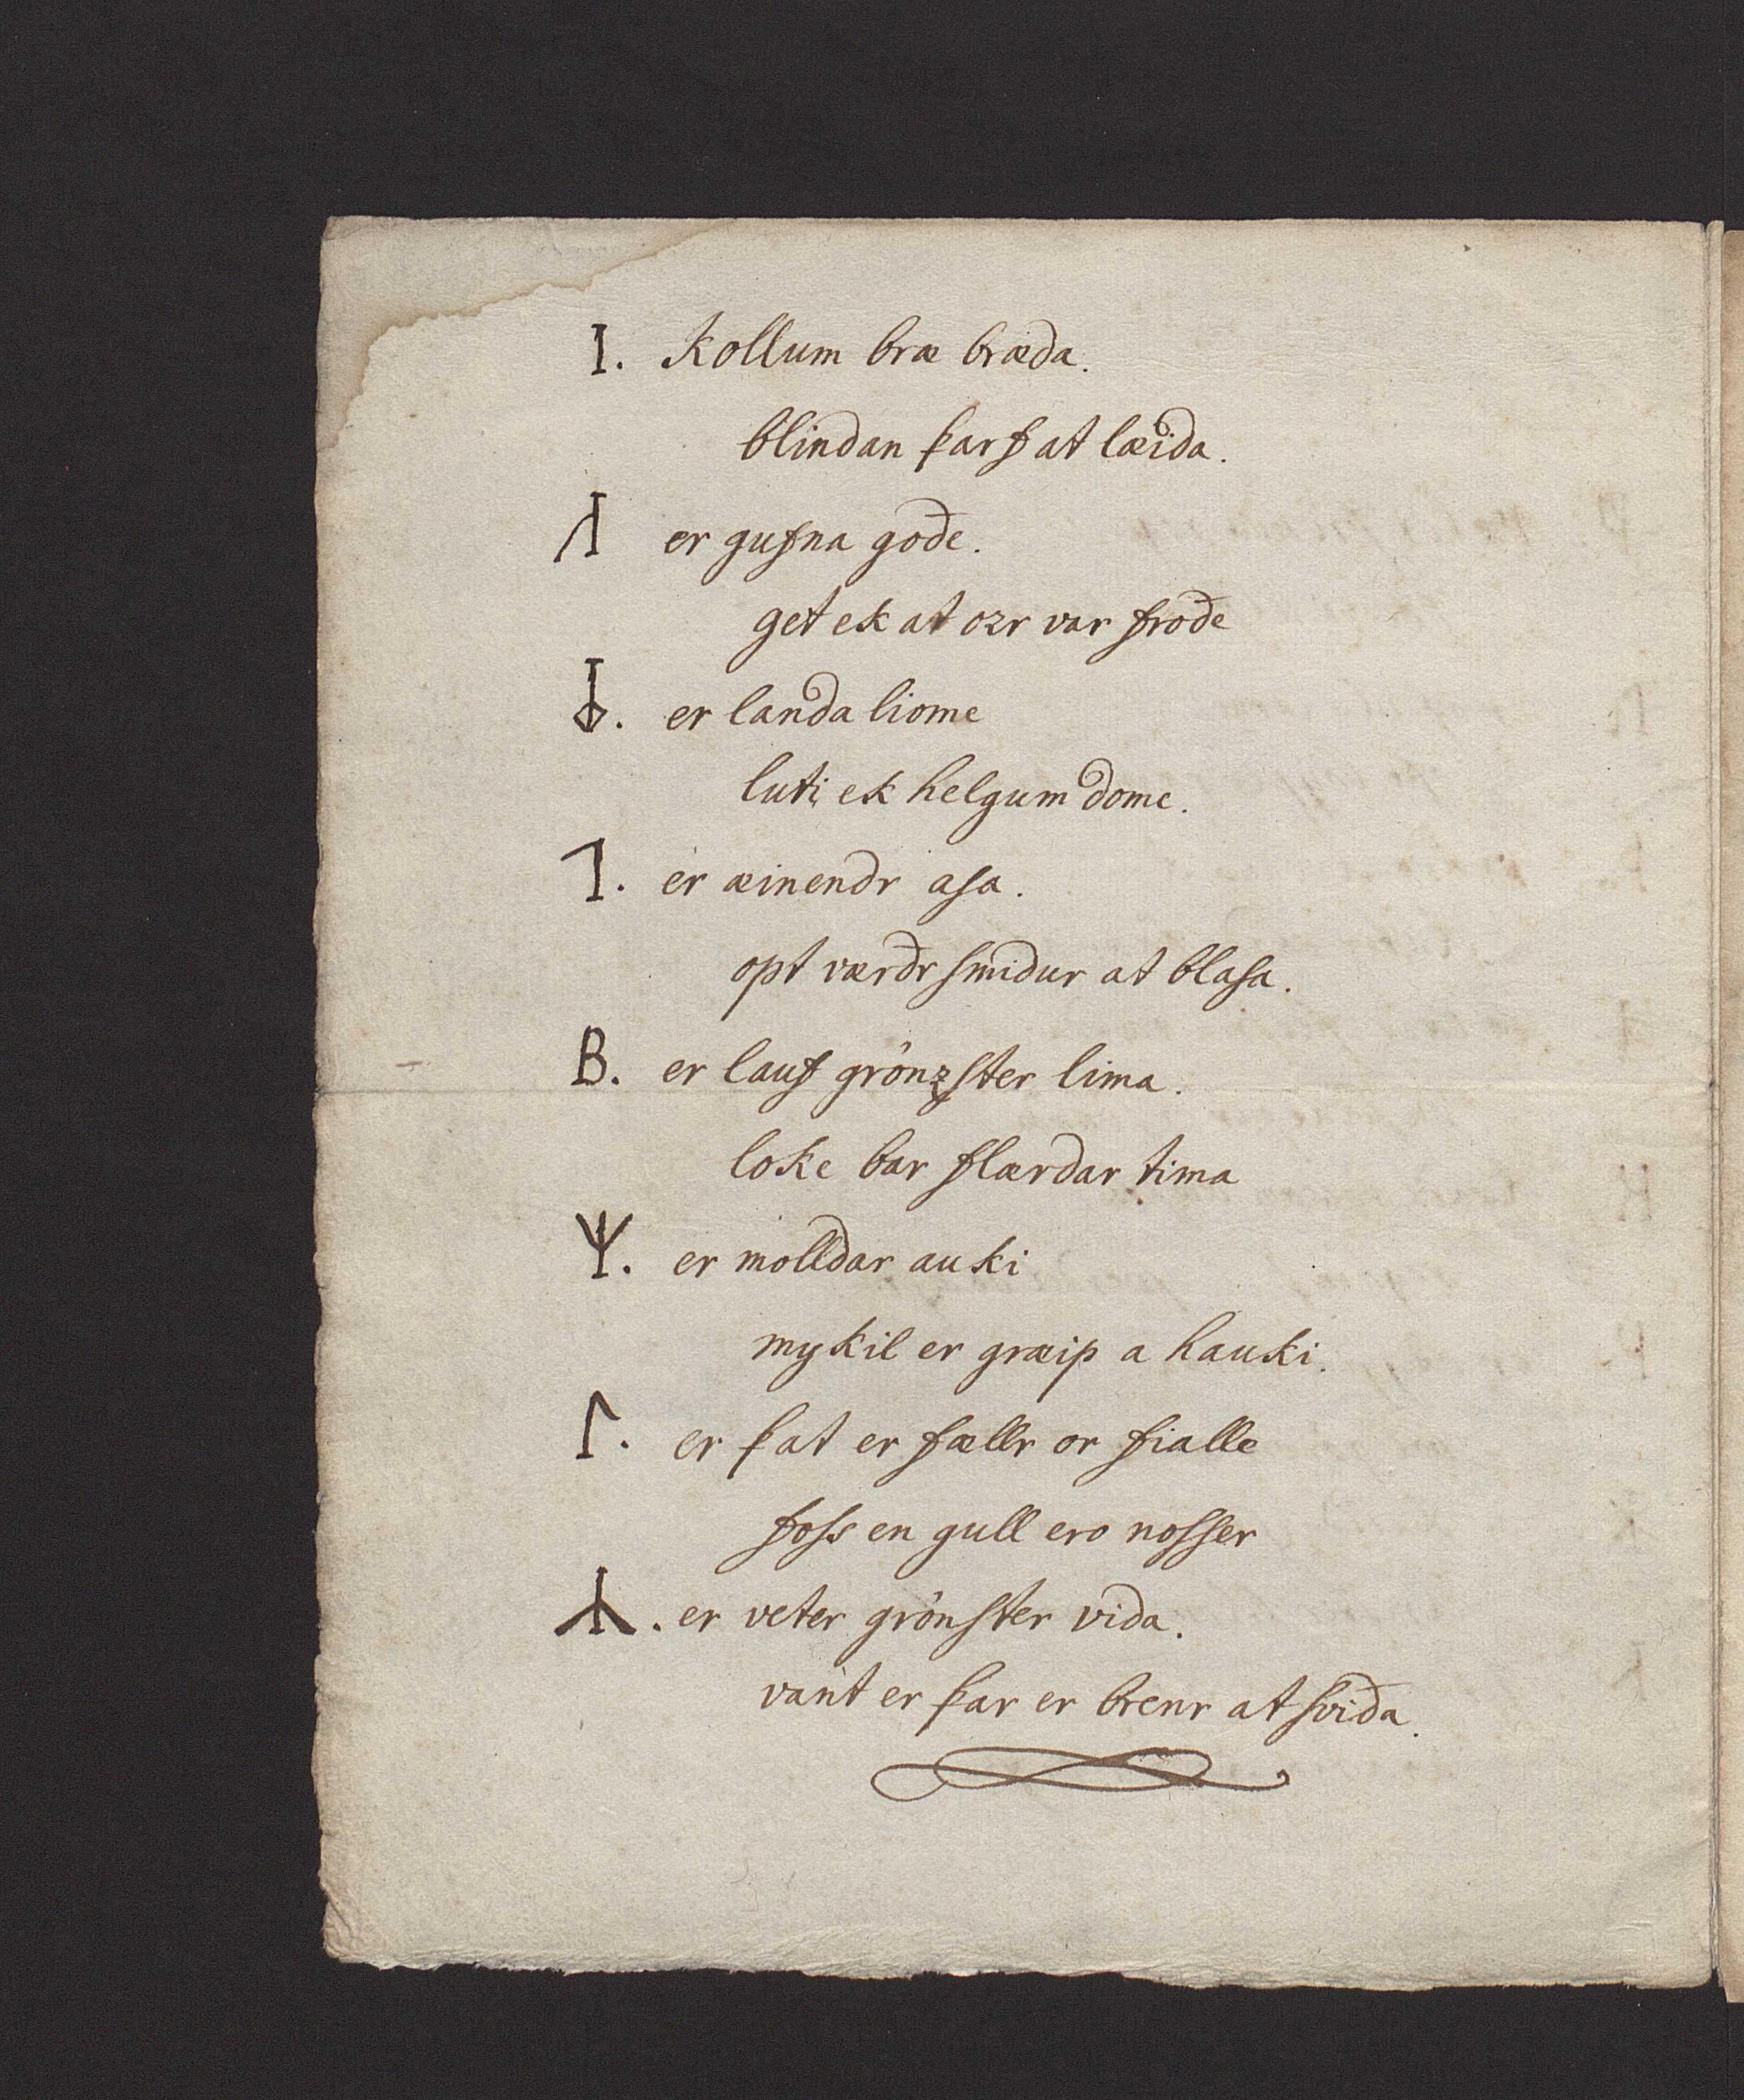 ᛁ. Kollum bræ bræda.
blindan þarf at læida.
ᛆ er gufna gođe.
get ek at ozr var frođe
ᛋ. er landa liome
luti ek helgum dome.
ᛐ. er æinendr aſa.
opt værđr ſmidur at blaſa.
ᛒ. er lauf grönzſter lima.
loke bar flærdar tima
ᛘ. er molldar auki
mykil er græip a hauki.
ᛚ. er þat er fællr or fialle
foſs en gull ero noſſer
ᛦ. er veter grönſter viđa.
vant er þar er brenr at ſviđa.